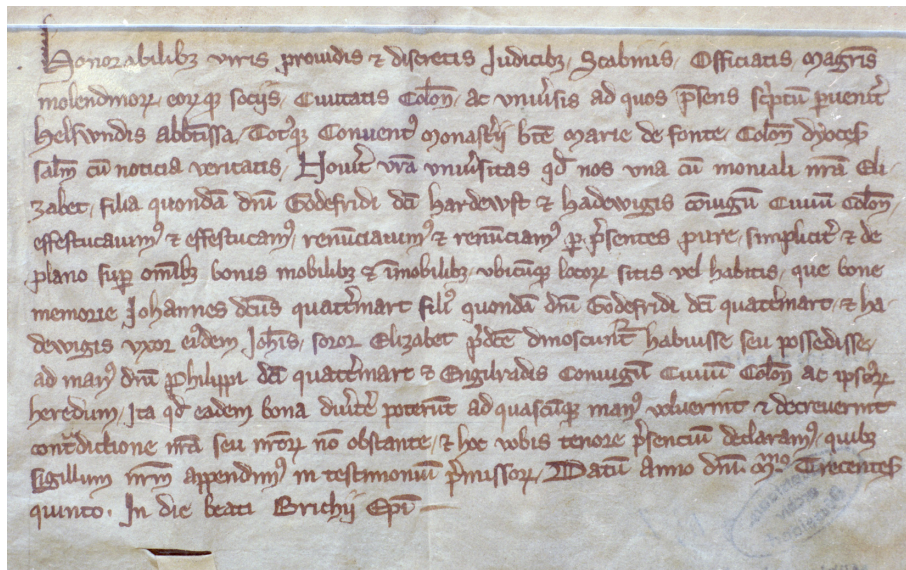 Honorabilibꝫ viris prouidis ⁊ discretis Judicibꝫ. Scabinis. Officiatis. Magr̄is
molendinoꝝ. eoꝝqꝫ socijs. Ciuitatis Colon̄. ac vniu̓sis ad quos p̄sens sc̓ptū ꝑuenit̓
Helswndis abb̄tissa. Totꝰqꝫ Conuentꝰ Monast̓ij btē Marie de fonte. Colon̄ dyoces̄
sal̄m cū noticia veritatis. Nouit̓ vr̄a vniu̓sitas qd̓ nos vna cū moniali nr̄a Eli-
zabet. filia quondā dn̄i Godefridi dc̄i hardewst ⁊ hadewigis ꝯiugū Ciuiū Colon̄.
effestucauimꝰ ⁊ effestucamꝰ renūciauimꝰ ⁊ renūciamꝰ ꝑ p̓sentes pure. simplicit̓ ⁊ de
plano suꝑ om̄ibꝫ bonis mobilibꝫ ⁊ īmobilibꝫ. vbicūqꝫ locoꝝ sitis vel habitis. que bone
memorie Johannes dc̄us quat̓mart filiꝰ quondā dn̄i Godefridi dc̄i quat̓mart. ⁊ ha-
dewigis vxor eiꝰdem Joh̄is. soror Elizabet p̓dc̄e dinoscunt̓ habuisse seu possedisse.
ad manꝰ dn̄i Philippi dc̄i quat̓mart ⁊ Engilradis Coniugū Ciuiū Colon̄ ac ipsoꝝ
heredum. Ita qd̓ eadem bona diu̓te̓ poterūt ad quascūqꝫ manꝰ voluerint ⁊ decreuerint
cont̓dictione nr̄a seu nr̄oꝝ nō obstante. ⁊ hoc vobis tenore p̓senciū declaramꝰ. quibꝫ
sigillum nr̄m appendimꝰ in testimoniū p̓missoꝝ. Datū Anno dn̄i. Mͫᵒ Trecentes̄
quinto. In die beati Brichij Ep̄i